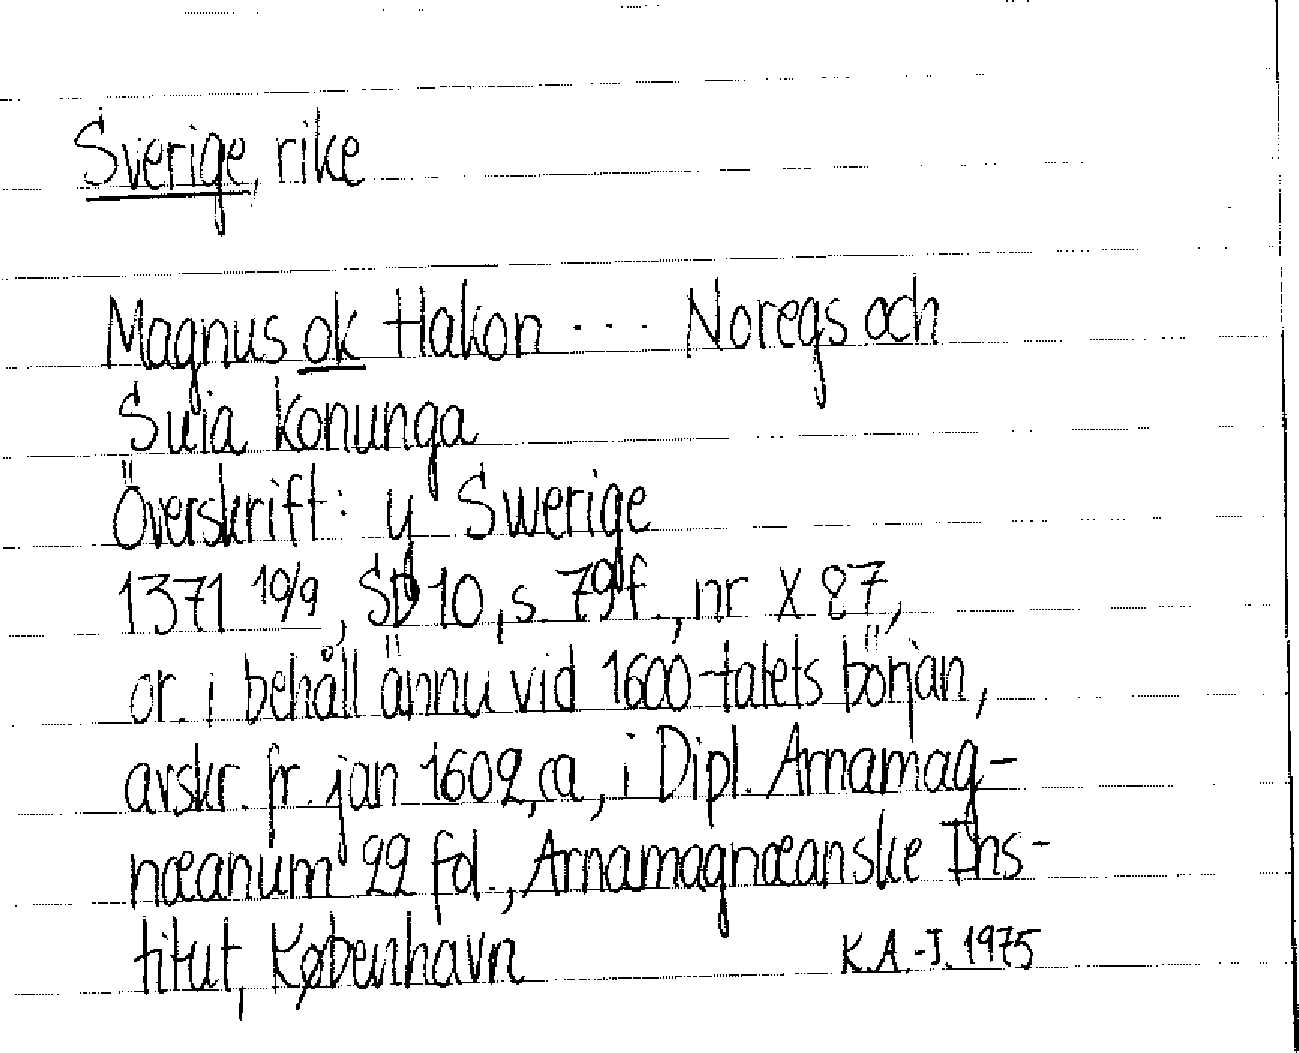 Sverige, rike
Magnus ok Hakon ... Noregs och
Suia konunga
Överskrift: y Swerige
1371 10/9, SD 10, s. 79 f., nr X 27,
or. i behåll ännu vid 1600-talets början,
avskr. fr. jan 1602, ca, i Dipl. Arnamag-
næanum 22 fol., Arnamagnæanske Ins-
titut, København K.A.-J. 1975